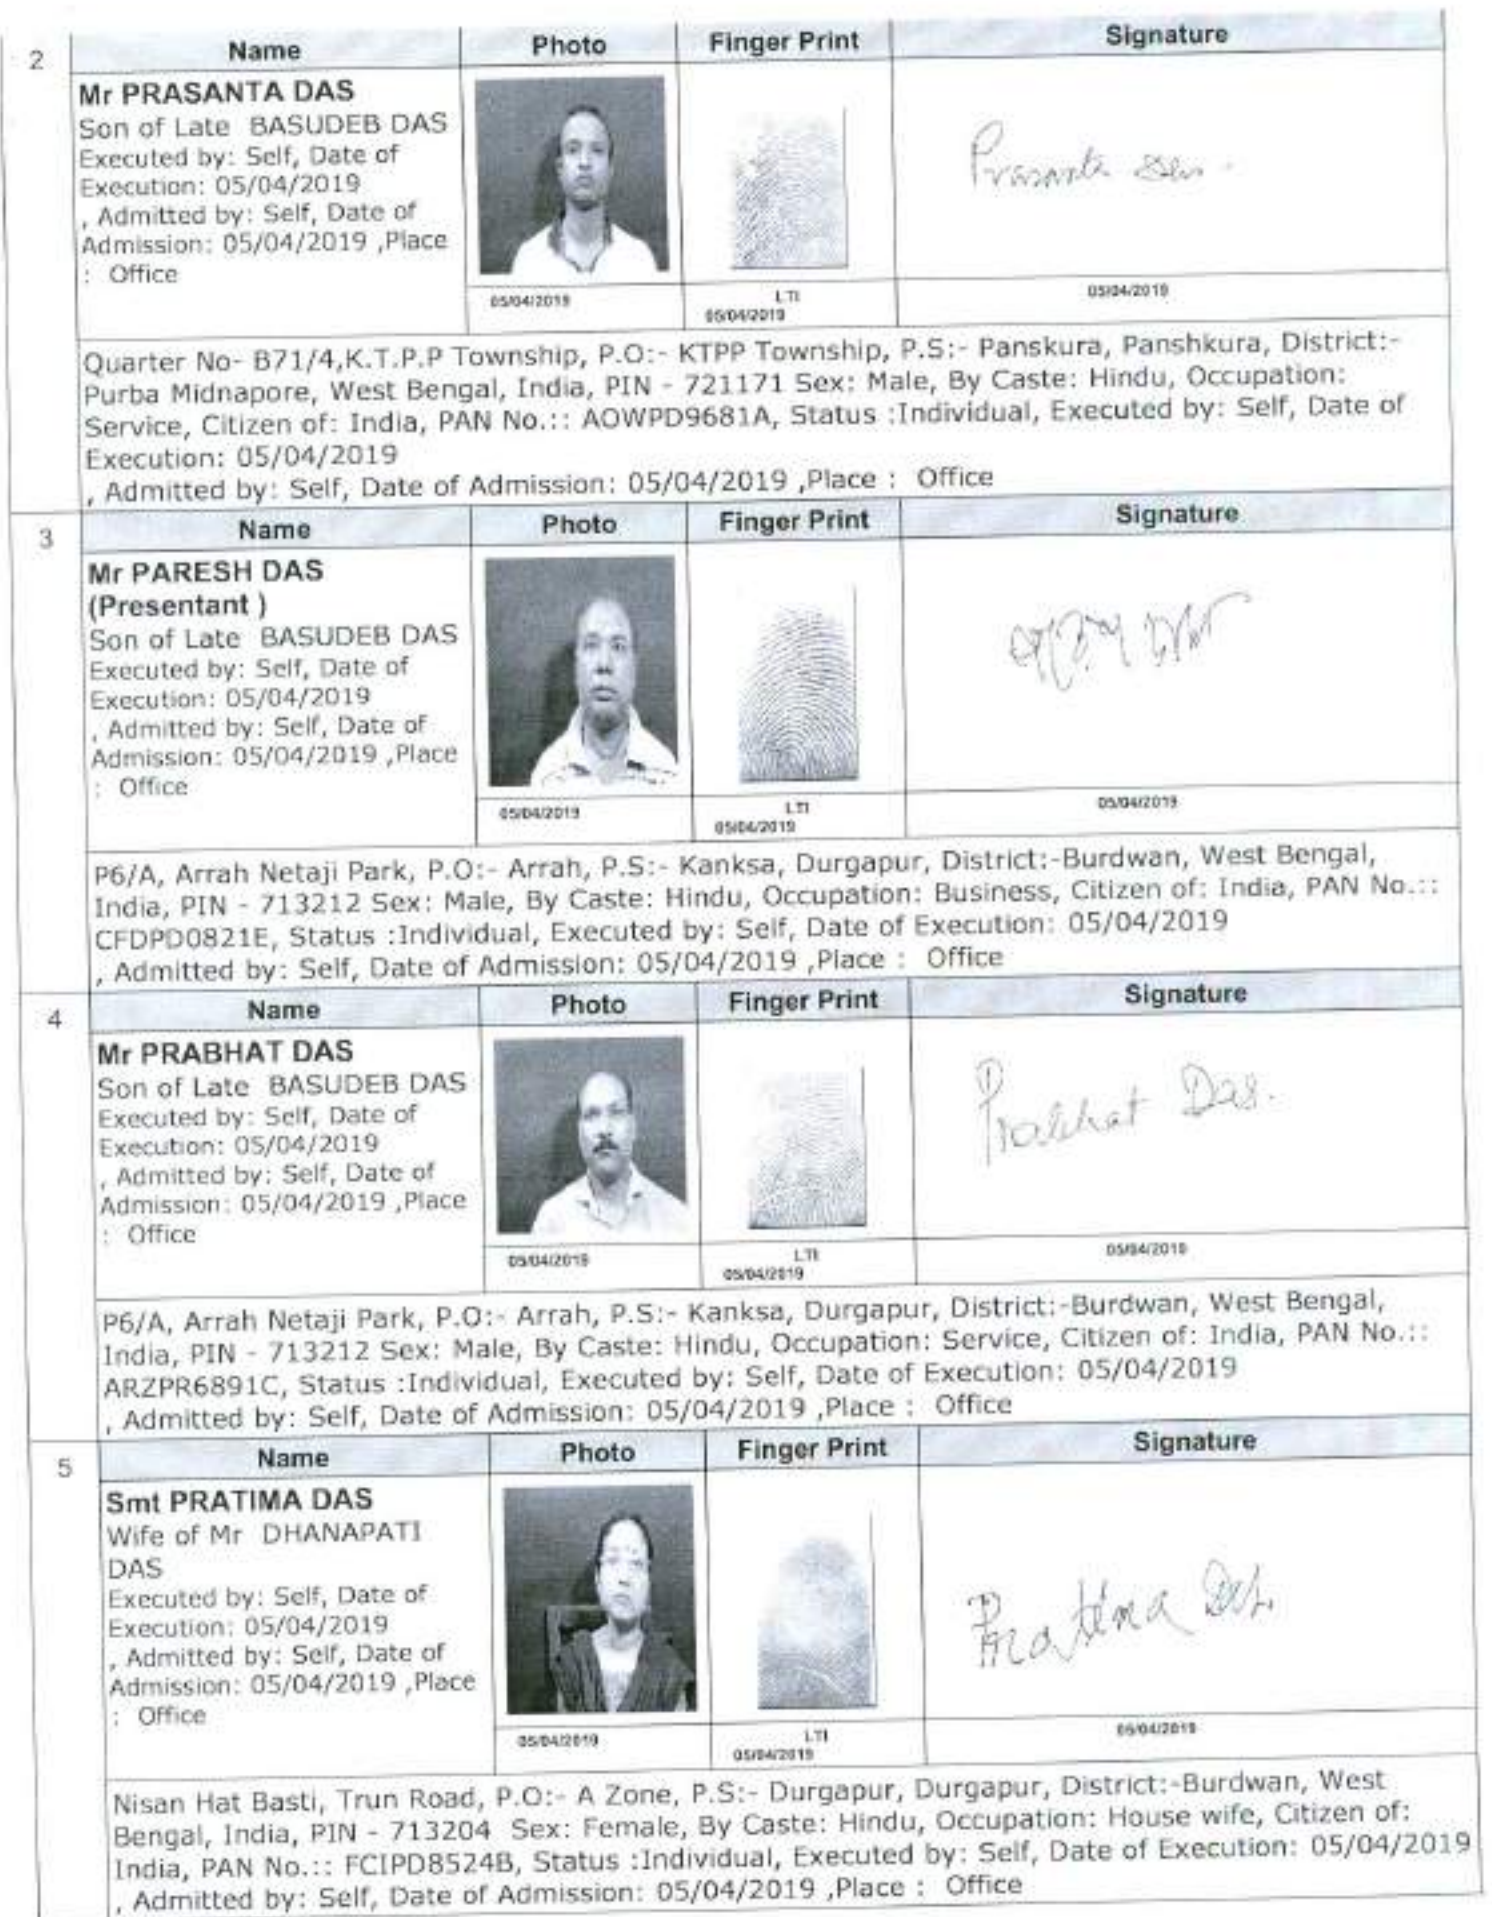 2
Name Photo Finger Print Signature
Mr PRASANTA DAS
Son of Late BASUDEB DAS
Executed by: Self, Date of
Execution: 05/04/2019
, Admitted by: Self, Date of
Admission: 05/04/2019 ,Place
: Office
Prasanta Das.
05/04/2019
LTI
05/04/2019
05/04/2019
Quarter No- B71/4,K.T.P.P Township, P.O:- KTPP Township, P.S:- Panskura, Panshkura, District:-
Purba Midnapore, West Bengal, India, PIN - 721171 Sex: Male, By Caste: Hindu, Occupation:
Service, Citizen of: India, PAN No.:: AOWPD9681A, Status :Individual, Executed by: Self, Date of
Execution: 05/04/2019
, Admitted by: Self, Date of Admission: 05/04/2019 ,Place : Office
3
Name Photo Finger Print Signature
Mr PARESH DAS
(Presentant )
Son of Late BASUDEB DAS
Executed by: Self, Date of
Execution: 05/04/2019
, Admitted by: Self, Date of
Admission: 05/04/2019 ,Place
: Office
05/04/2019
LTI
05/04/2019
05/04/2019
P6/A, Arrah Netaji Park, P.O:- Arrah, P.S:- Kanksa, Durgapur, District:-Burdwan, West Bengal,
India, PIN - 713212 Sex: Male, By Caste: Hindu, Occupation: Business, Citizen of: India, PAN No.::
CFDPD0821E, Status :Individual, Executed by: Self, Date of Execution: 05/04/2019
, Admitted by: Self, Date of Admission: 05/04/2019 ,Place : Office
4
Name Photo Finger Print Signature
Mr PRABHAT DAS
Son of Late BASUDEB DAS
Executed by: Self, Date of
Execution: 05/04/2019
, Admitted by: Self, Date of
Admission: 05/04/2019 ,Place
: Office
Prabhat Das.
05/04/2019
LTI
05/04/2019
05/04/2019
P6/A, Arrah Netaji Park, P.O:- Arrah, P.S:- Kanksa, Durgapur, District:-Burdwan, West Bengal,
India, PIN - 713212 Sex: Male, By Caste: Hindu, Occupation: Service, Citizen of: India, PAN No.::
ARZPR6891C, Status :Individual, Executed by: Self, Date of Execution: 05/04/2019
, Admitted by: Self, Date of Admission: 05/04/2019 ,Place : Office
5
Name Photo Finger Print Signature
Smt PRATIMA DAS
Wife of Mr DHANAPATI
DAS
Executed by: Self, Date of
Execution: 05/04/2019
, Admitted by: Self, Date of
Admission: 05/04/2019 ,Place
: Office
Pratima Das
05/04/2019
LTI
05/04/2019
05/04/2019
Nisan Hat Basti, Trun Road, P.O:- A Zone, P.S:- Durgapur, Durgapur, District:-Burdwan, West
Bengal, India, PIN - 713204 Sex: Female, By Caste: Hindu, Occupation: House wife, Citizen of:
India, PAN No.:: FCIPD8524B, Status :Individual, Executed by: Self, Date of Execution: 05/04/2019
, Admitted by: Self, Date of Admission: 05/04/2019 ,Place : Office